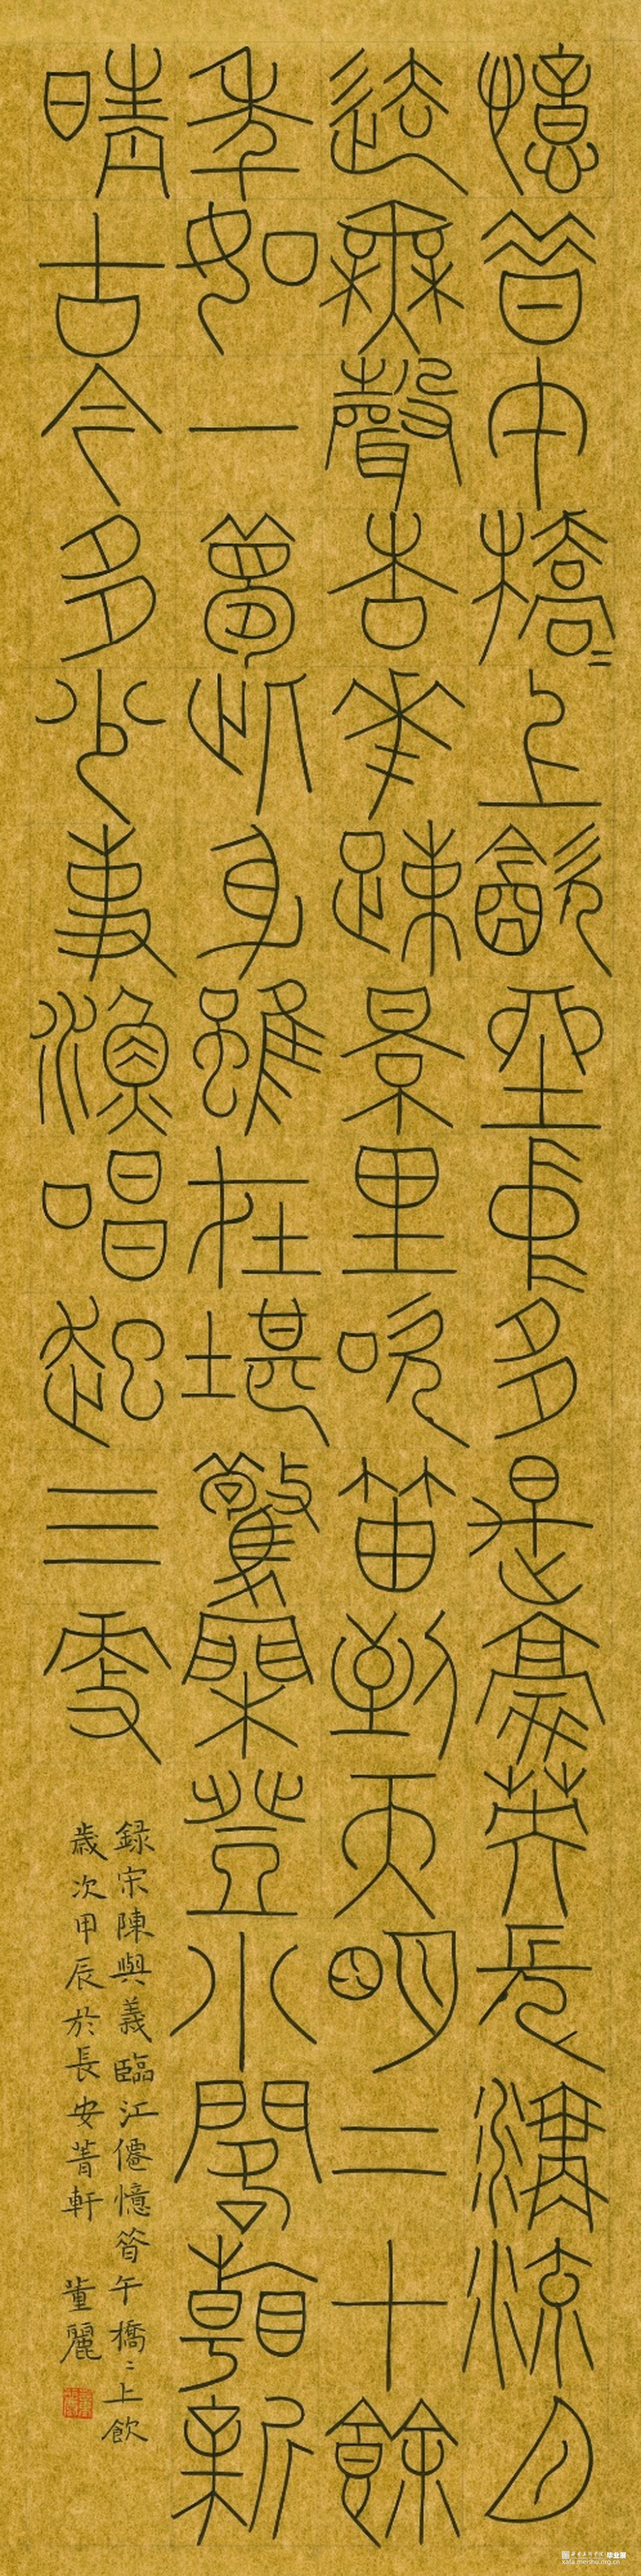 憶昔午橋〻上飲坐中多是豪英長溝流月
去無聲杏花踈景里吹笛到天明二十餘
年如一夢此身雖在堪驚閑登小閣看新
晴古今多少事漁唱起三更
録宋陳與義臨江僊憶昔午橋〻上飲
歲次甲辰於長安菁軒 董麗
毕业展
xafa.meishu.org.cn